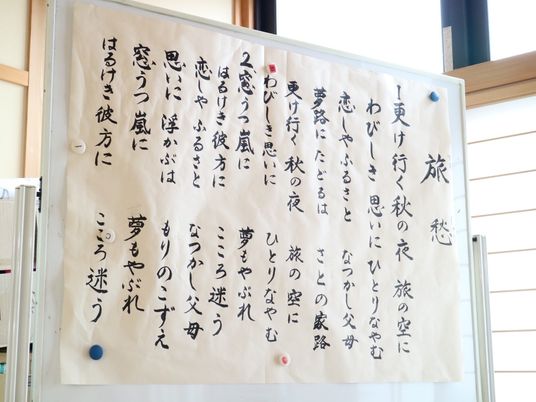 旅愁
1更け行く秋の夜 旅の空に
わびしき 思いに ひとりなやむ
恋しやふるさと なつかし父母
夢路に たどるは さとの家路
更け行く 秋の夜 旅の空に
わびしき思いに ひとりなやむ
2窓うつ嵐に 夢もやぶれ
はるけき彼方に こころ迷う
恋しや ふるさと なつかし父母
思いに 浮かぶは もりのこずえ
窓うつ 嵐に 夢もやぶれ
はるけき 彼方に こころ迷う